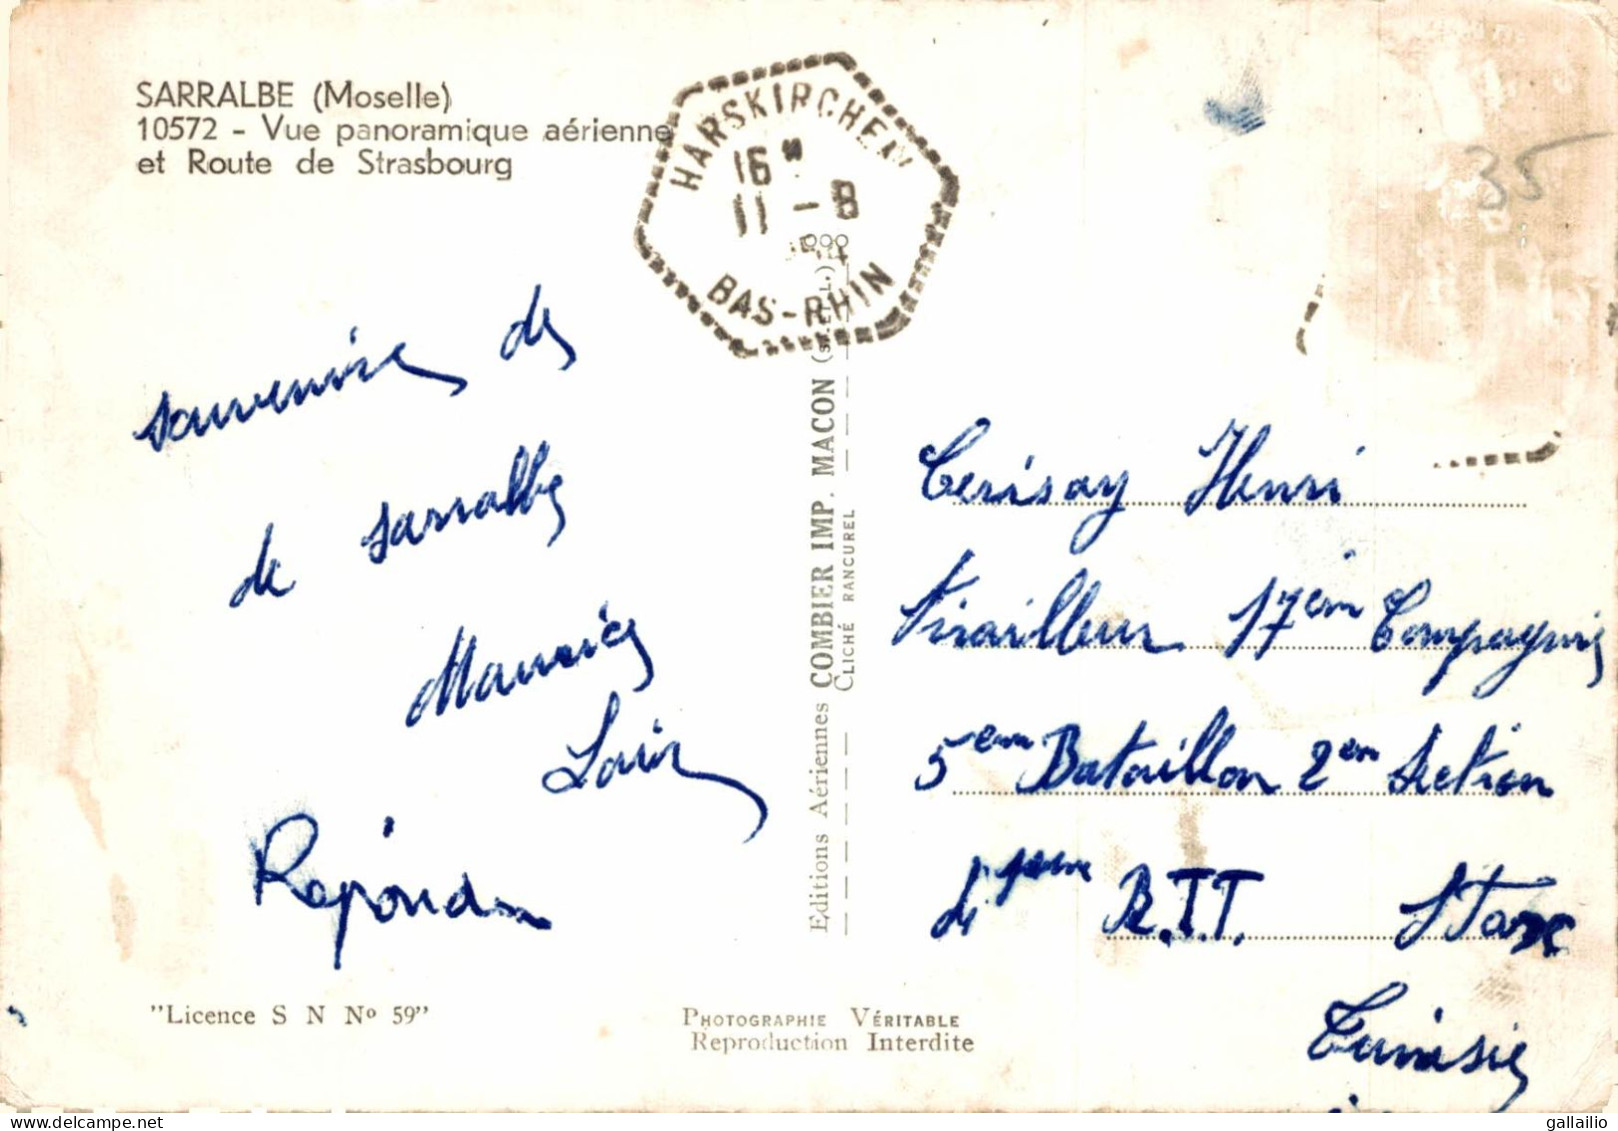 SARRALBE (Moselle)
10572 - Vue panoramique aérienne
et Route de Strasbourg
HARSKIRCHEN
16H
11 - 8
BAS-RHIN
35
souvenire de
de sarralbe
Maurice
Loui
Repond
Editions Aériennes COMBIER IMP. MACON (S.-&-L.)
CLICHÉ RANCUREL
Cerisay Henri
Tirailleur 17ème Compagnie
5em Bataillon 2em Section
4eme R.T.T. Sfax
Tunisie
"Licence S N No 59"
PHOTOGRAPHIE VÉRITABLE
Reproduction Interdite
delcampe.net
gallailio